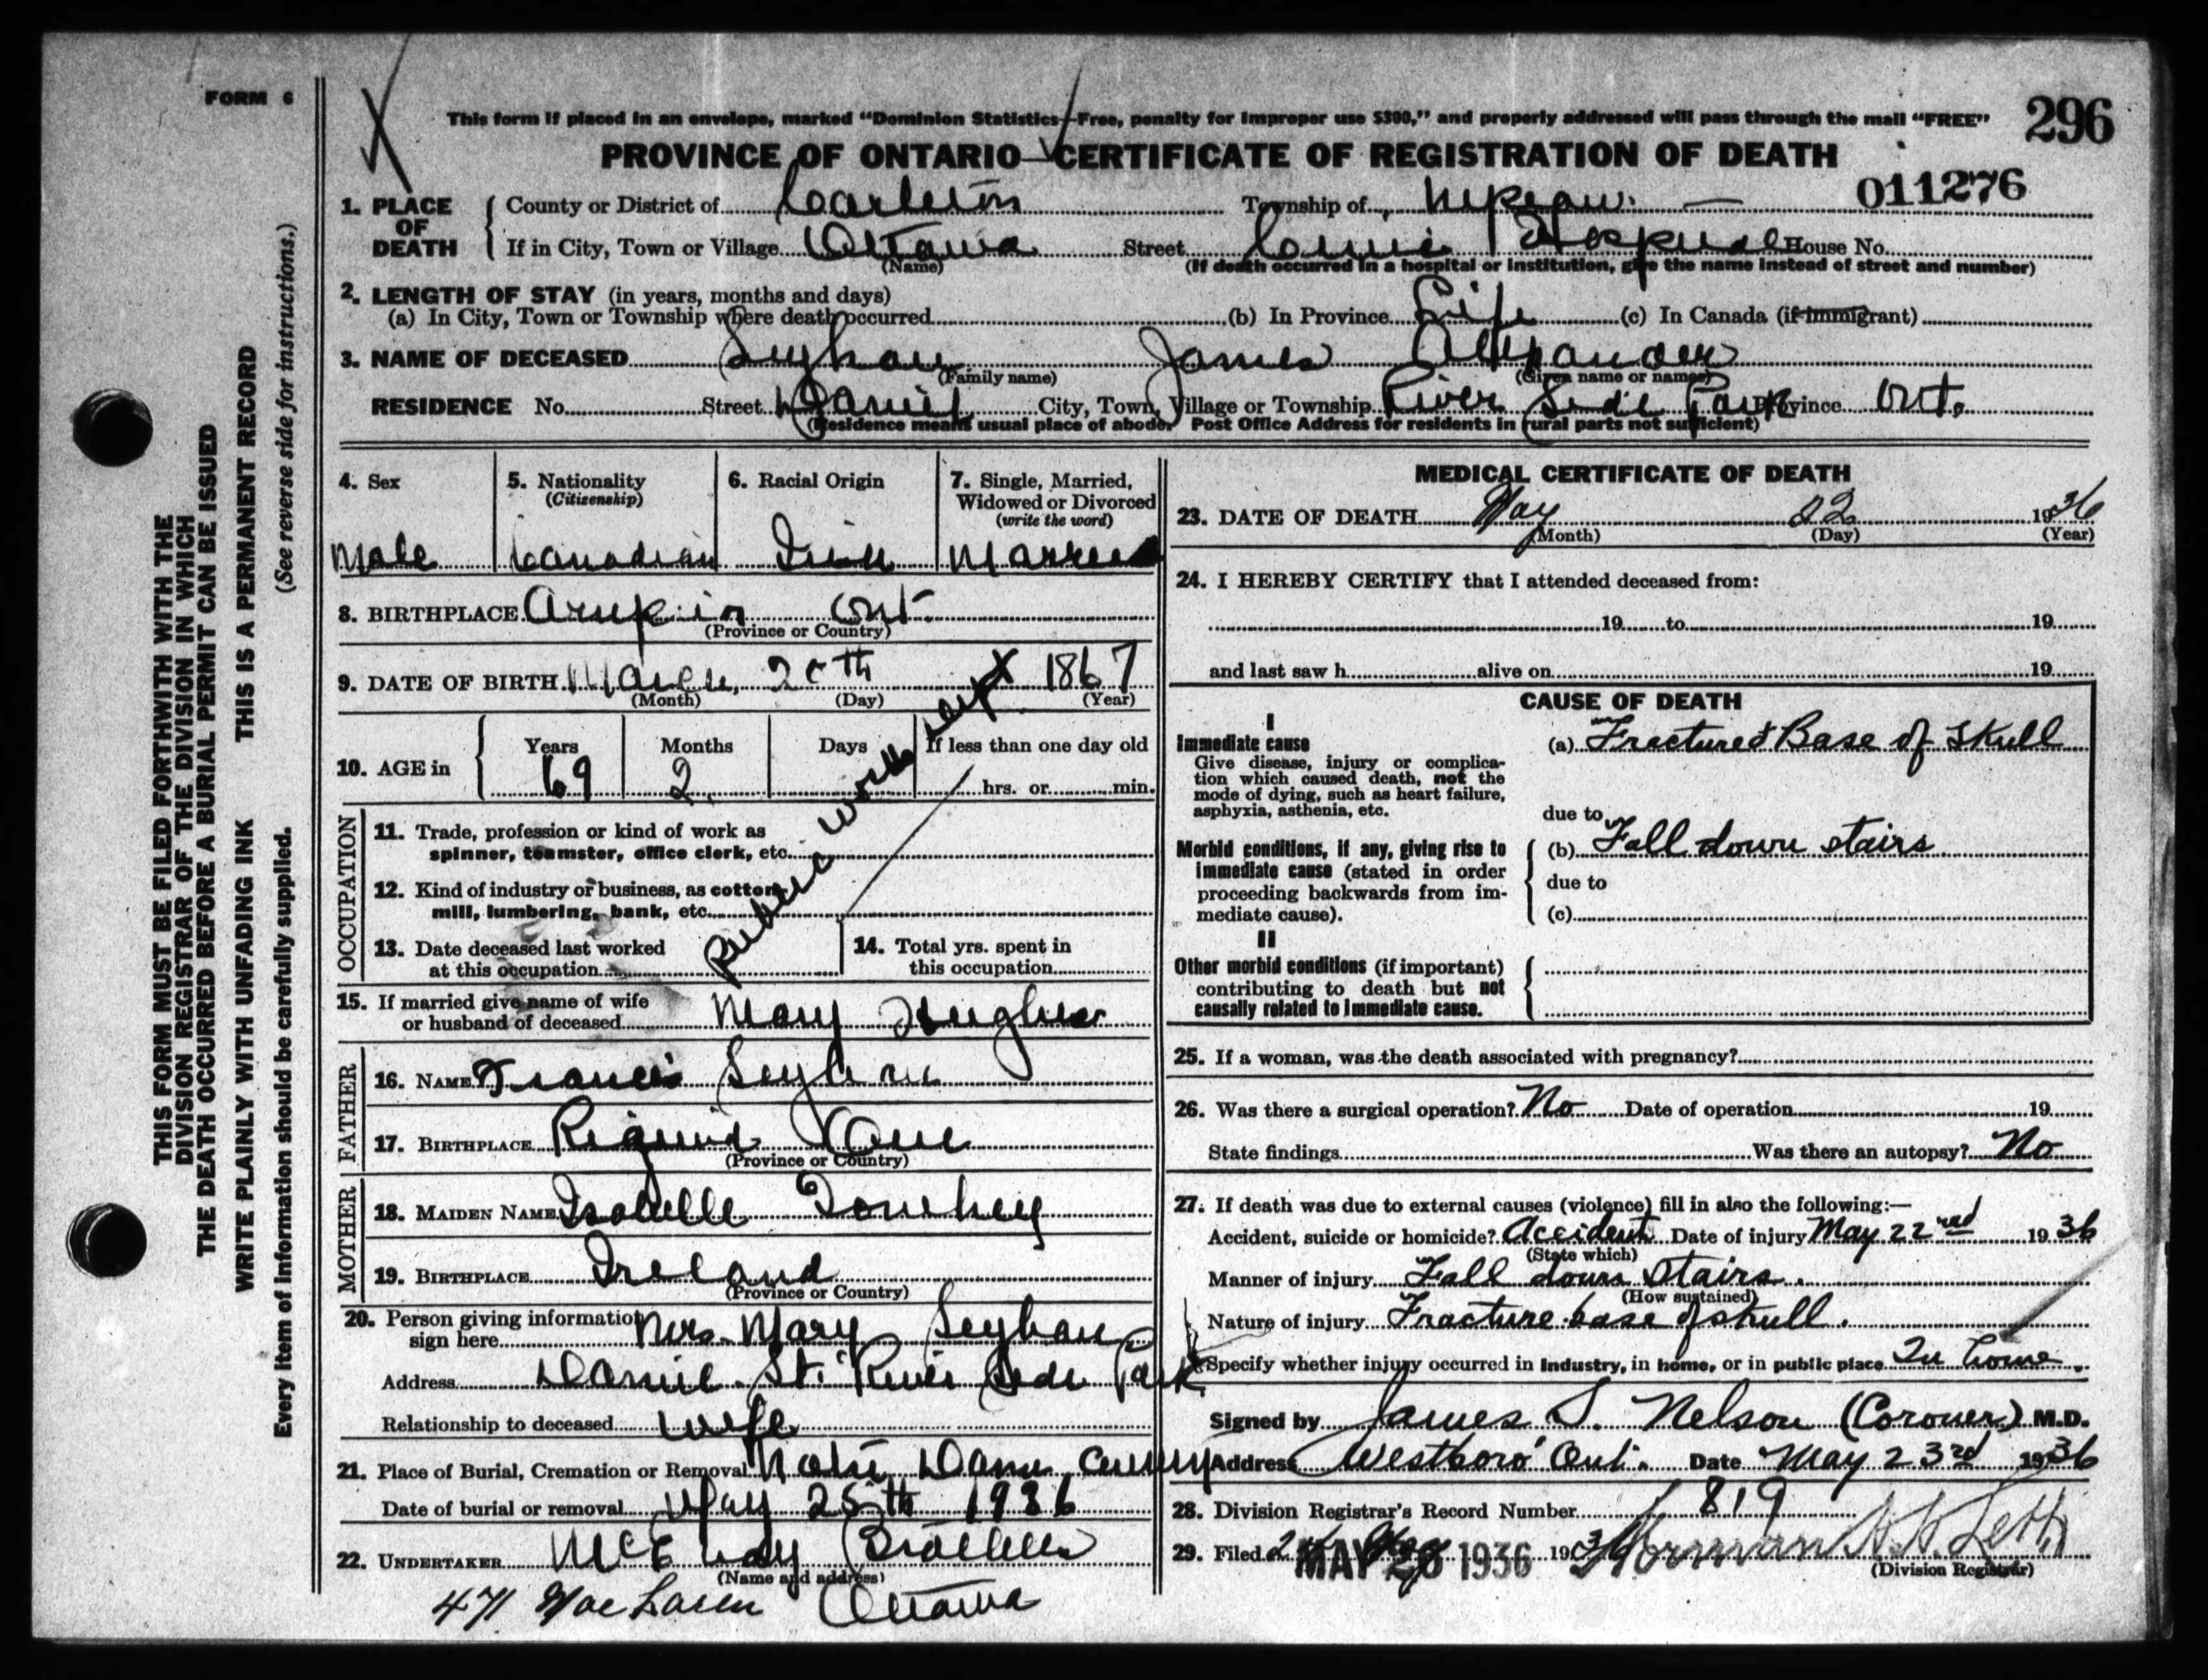 FORM 6
This form if placed in an envelope, marked “Dominion Statistics—Free, penalty for improper use $300,” and properly addressed will pass through the mail “FREE”
296
PROVINCE OF ONTARIO—CERTIFICATE OF REGISTRATION OF DEATH
011276
1. PLACE OF DEATH
County or District of Carleton Township of Nepean
If in City, Town or Village Ottawa Street Civic Hospital House No.
(Name) (If death occurred in a hospital or institution, give the name instead of street and number)
2. LENGTH OF STAY (in years, months and days)
(a) In City, Town or Township where death occurred (b) In Province Life (c) In Canada (if immigrant)
3. NAME OF DECEASED James Alexander
(Family name) (Given name or names)
RESIDENCE No. Street Daniel City, Town, Village or Township River Side Park Province Ont.
(Residence means usual place of abode. Post Office Address for residents in rural parts not sufficient)
4. Sex
Male
5. Nationality
(Citizenship)
Canadian
6. Racial Origin
Irish
7. Single, Married,
Widowed or Divorced
(write the word)
Married
8. BIRTHPLACE Arnprior Ont.
(Province or Country)
9. DATE OF BIRTH March 1867
(Month) (Day) (Year)
10. AGE in
Years Months Days If less than one day old
69 2 hrs. or min.
OCCUPATION
11. Trade, profession or kind of work as
spinner, teamster, office clerk, etc.
12. Kind of industry or business, as cotton
mill, lumbering, bank, etc.
13. Date deceased last worked
at this occupation
14. Total yrs. spent in
this occupation
Public works dept
15. If married give name of wife
or husband of deceased Mary Hughes
FATHER
16. NAME Francis
17. BIRTHPLACE Rigaud Que
(Province or Country)
MOTHER
18. MAIDEN NAME Isabelle
19. BIRTHPLACE Ireland
(Province or Country)
20. Person giving information
sign here Mrs. Mary
Address Daniel St. River Side Park
Relationship to deceased wife
21. Place of Burial, Cremation or Removal Notre Dame Cemetery
Date of burial or removal May 25th 1936
22. UNDERTAKER McEvoy Brothers
(Name and address)
471 MacLaren Ottawa
MEDICAL CERTIFICATE OF DEATH
23. DATE OF DEATH May 22 1936
(Month) (Day) (Year)
24. I HEREBY CERTIFY that I attended deceased from:
19 to 19
and last saw h alive on 19
CAUSE OF DEATH
I
Immediate cause
Give disease, injury or complica-
tion which caused death, not the
mode of dying, such as heart failure,
asphyxia, asthenia, etc.
(a) Fractured Base of Skull
due to
Morbid conditions, if any, giving rise to
immediate cause (stated in order
proceeding backwards from im-
mediate cause).
(b) Fall down stairs
due to
(c)
II
Other morbid conditions (if important)
contributing to death but not
causally related to immediate cause.
25. If a woman, was the death associated with pregnancy?
26. Was there a surgical operation? No Date of operation 19
State findings Was there an autopsy? No
27. If death was due to external causes (violence) fill in also the following:—
Accident, suicide or homicide? Accident Date of injury May 22nd 1936
(State which)
Manner of injury Fall down Stairs.
(How sustained)
Nature of injury Fracture base of skull.
Specify whether injury occurred in industry, in home, or in public place In home.
Signed by James S. Nelson (Coroner) M.D.
Address Westboro' Ont. Date May 23rd 1936
28. Division Registrar's Record Number 819
29. Filed MAY 1936 1936 Norman H. H. Lett
(Division Registrar)
THIS FORM MUST BE FILED FORTHWITH WITH THE
DIVISION REGISTRAR OF THE DIVISION IN WHICH
THE DEATH OCCURRED BEFORE A BURIAL PERMIT CAN BE ISSUED
WRITE PLAINLY WITH UNFADING INK THIS IS A PERMANENT RECORD
Every item of information should be carefully supplied. (See reverse side for instructions.)